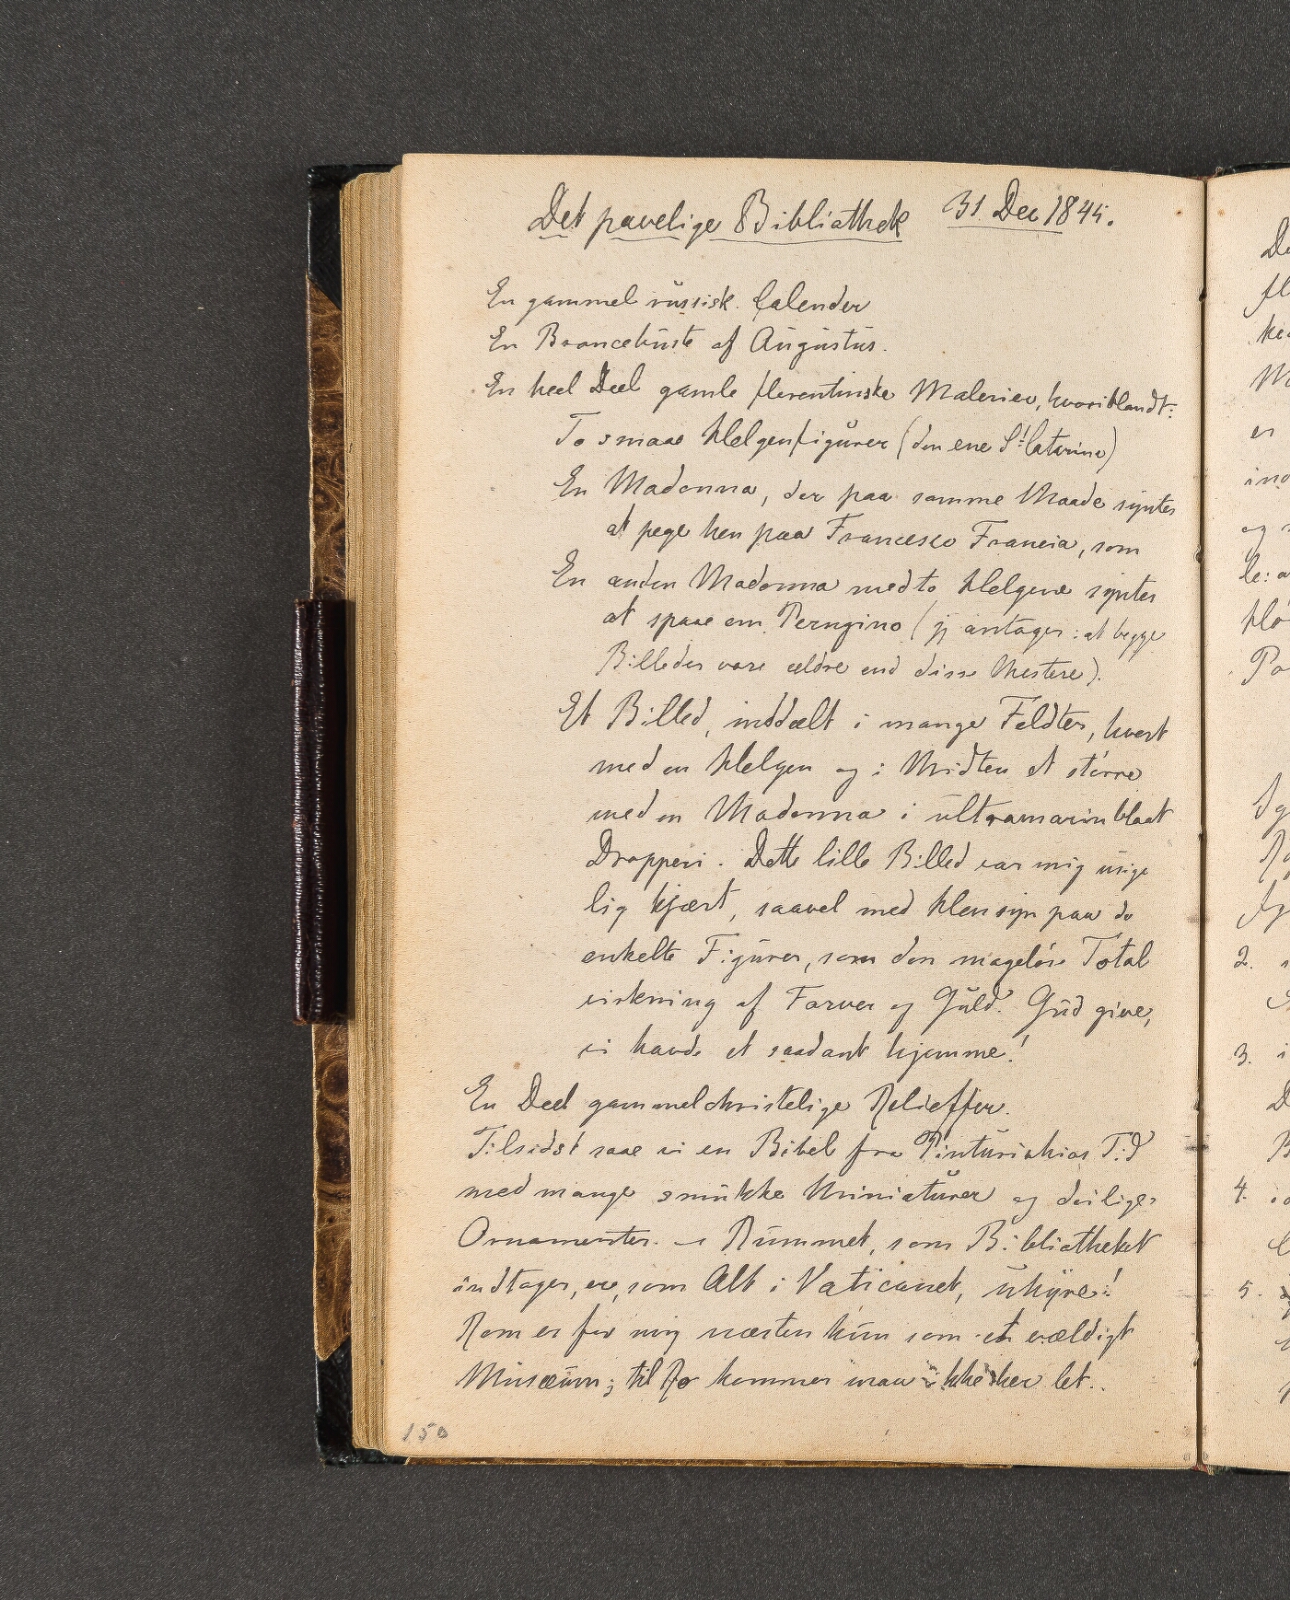 Det pavelige Bibliothek 31 Dec 1845.
En gammel russisk Calender
En Broncebuste af Augustus.
En heel Deel gamle florentinske Malerier, hvoriblandt:
To smaae Helgenfigurer (den ene St. Catarina)
En Madonna, der paa samme Maade syntes
at pege hen paa Francesco Francia, som
En anden Madonna med to Helgene syntes
at spaae om Perugino (jeg antager: at begge
Billeder vare ældre end disse Mestere).
Et Billed, inddeelt i mange Feldter, hvert
med en Helgen og i Midten et större
med en Madonna i ultramarinblaat
Drapperi. Dette lille Billed var mig usige
lig kjært, saavel med Hensyn paa de
enkelte Figurer, som den magelöse Total
virkning af Farver og Guld. Gud give,
vi havde et saadant hjemme!
En Deel gammelchristelige Relieffer.
Tilsidst saae vi en Bibel fra Pinturichios Tid
med mange smukke Miniaturer og deilige
Ornamenter. Rummet, som Bibliotheket
indtager, er, som Alt i Vaticanet, uhyre!
Rom er for mig næsten kun som et vældigt
Museum; til Ro kommer man ikke her let.
150
De
fl
ke
M
er
ind
og
le: a
Hö
Po
2.
3. i
D
B
4.
5.